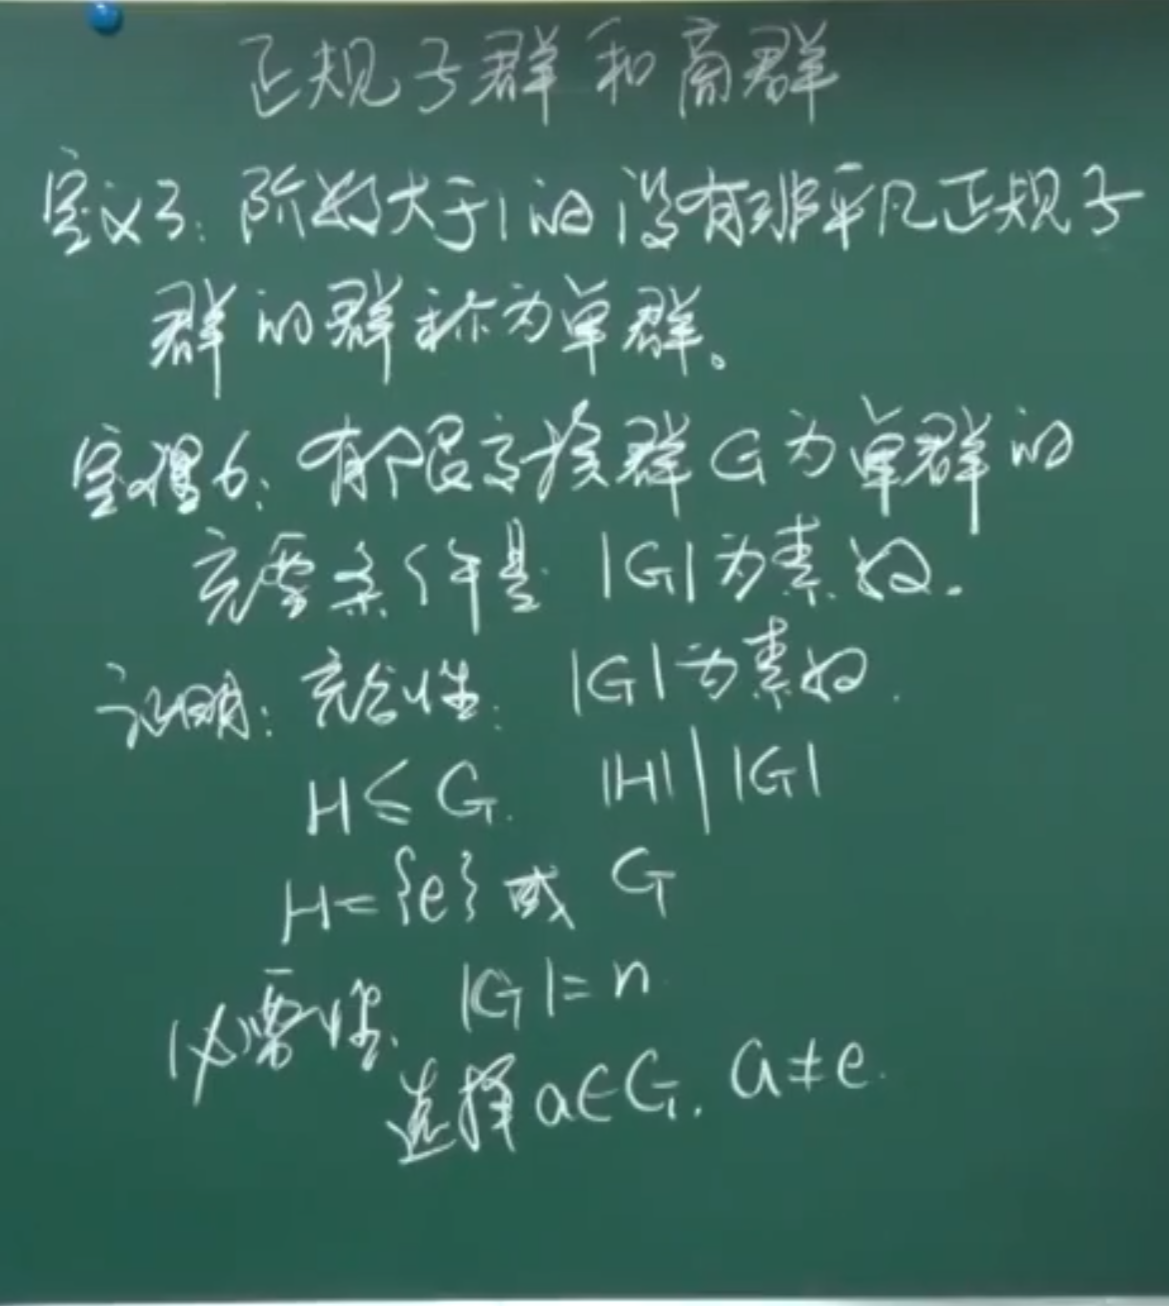 正规子群和商群
定义3：阶数大于1的没有非平凡正规子
群的群称为单群。
定理6：有限交换群G为单群的
充要条件是 |G|为素数.
证明：充分性：|G|为素数.
H≤G. |H| | |G|
H={e}或 G
必要性. |G|=n
选择a∈G, a≠e.